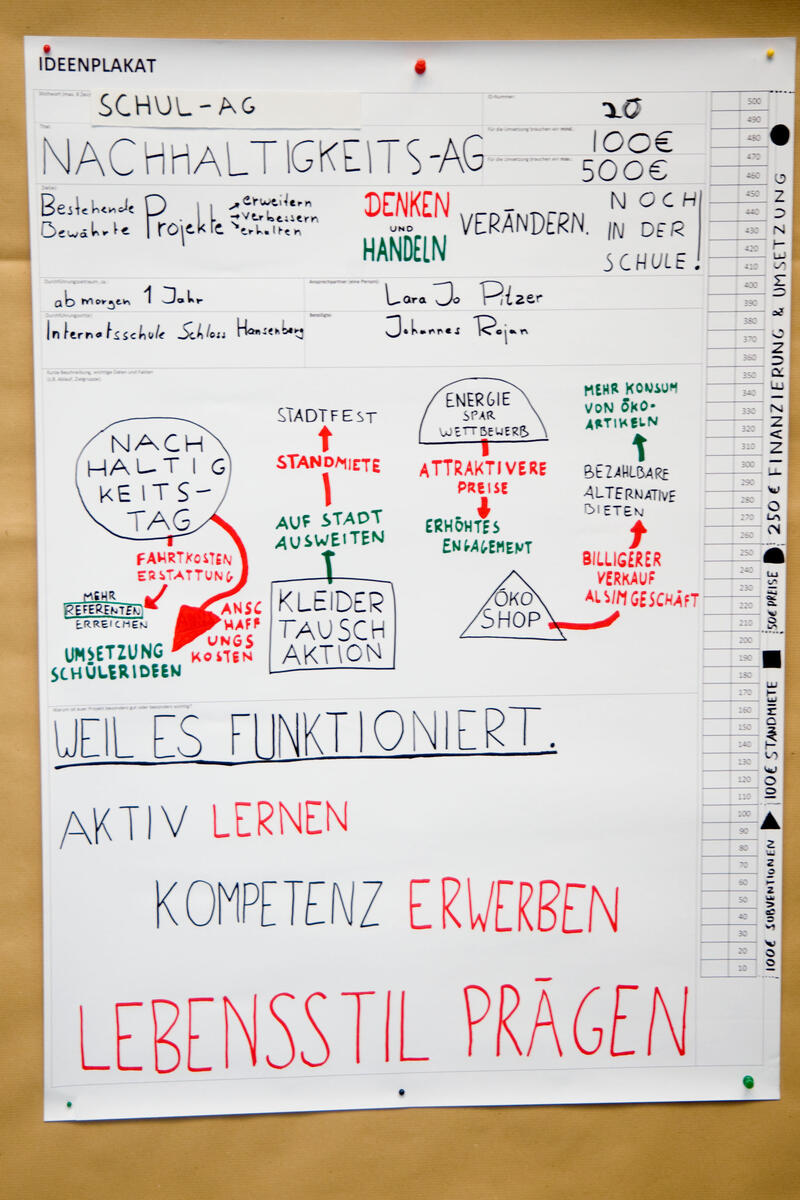 IDEENPLAKAT
SCHUL-AG
ID-Nummer:
20
Titel:
NACHHALTIGKEITS-AG
Für die Umsetzung brauchen wir mind.:
100€
Für die Umsetzung brauchen wir max.:
500€
Ziel(e):
Bestehende
Bewährte
Projekte
erweitern
verbessern
erhalten
DENKEN
UND
HANDELN
VERÄNDERN.
NOCH
IN DER
SCHULE!
Durchführungszeitraum, ca.:
ab morgen 1 Jahr
Ansprechpartner (eine Person):
Lara Jo Pitzer
Durchführungsort(e):
Internatsschule Schloss Hansenberg
Beteiligte:
Johannes Rojan
Kurze Beschreibung, wichtige Daten und Fakten
(z.B. Ablauf, Zielgruppe):
NACH
HALTIG
KEITS-
TAG
FAHRTKOSTEN
ERSTATTUNG
MEHR
REFERENTEN
ERREICHEN
UMSETZUNG
SCHÜLERIDEEN
ANSC
HAFF
UNGS
KOSTEN
STADTFEST
STANDMIETE
AUF STADT
AUSWEITEN
KLEIDER
TAUSCH
AKTION
ENERGIE
SPAR
WETTBEWERB
ATTRAKTIVERE
PREISE
ERHÖHTES
ENGAGEMENT
ÖKO
SHOP
MEHR KONSUM
VON ÖKO-
ARTIKELN
BEZAHLBARE
ALTERNATIVE
BIETEN
BILLIGERER
VERKAUF
ALS IM GESCHÄFT
Warum ist euer Projekt besonders gut oder besonders wichtig?
WEIL ES FUNKTIONIERT.
AKTIV LERNEN
KOMPETENZ ERWERBEN
LEBENSSTIL PRÄGEN
500
490
480
470
460
450
440
430
420
410
400
390
380
370
360
350
340
330
320
310
300
290
280
270
260
250
240
230
220
210
200
190
180
170
160
150
140
130
120
110
100
90
80
70
60
50
40
30
20
10
250€ FINANZIERUNG & UMSETZUNG
50€ PREISE
100€ STANDMIETE
100€ SUBVENTIONEN